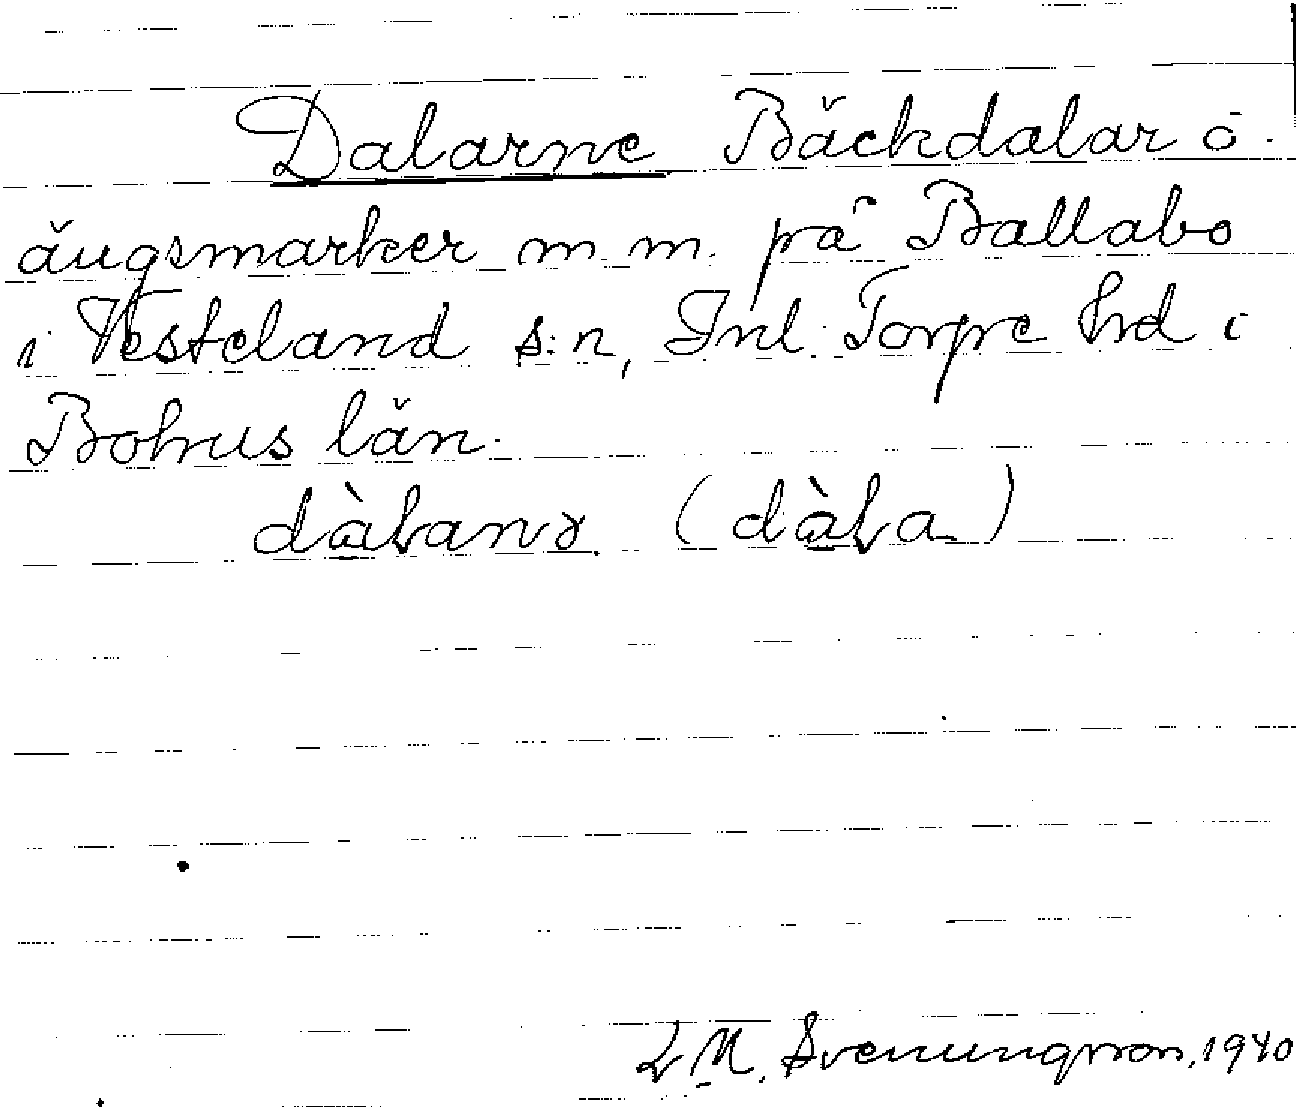 Dalarne Bäckdalar o.
ängsmarker m. m. på Ballabo
i Vesteland s:n, Inl. Torpe hd i
Bohus län.
dàlanə (dàla)
L M. Svenungsson, 1940